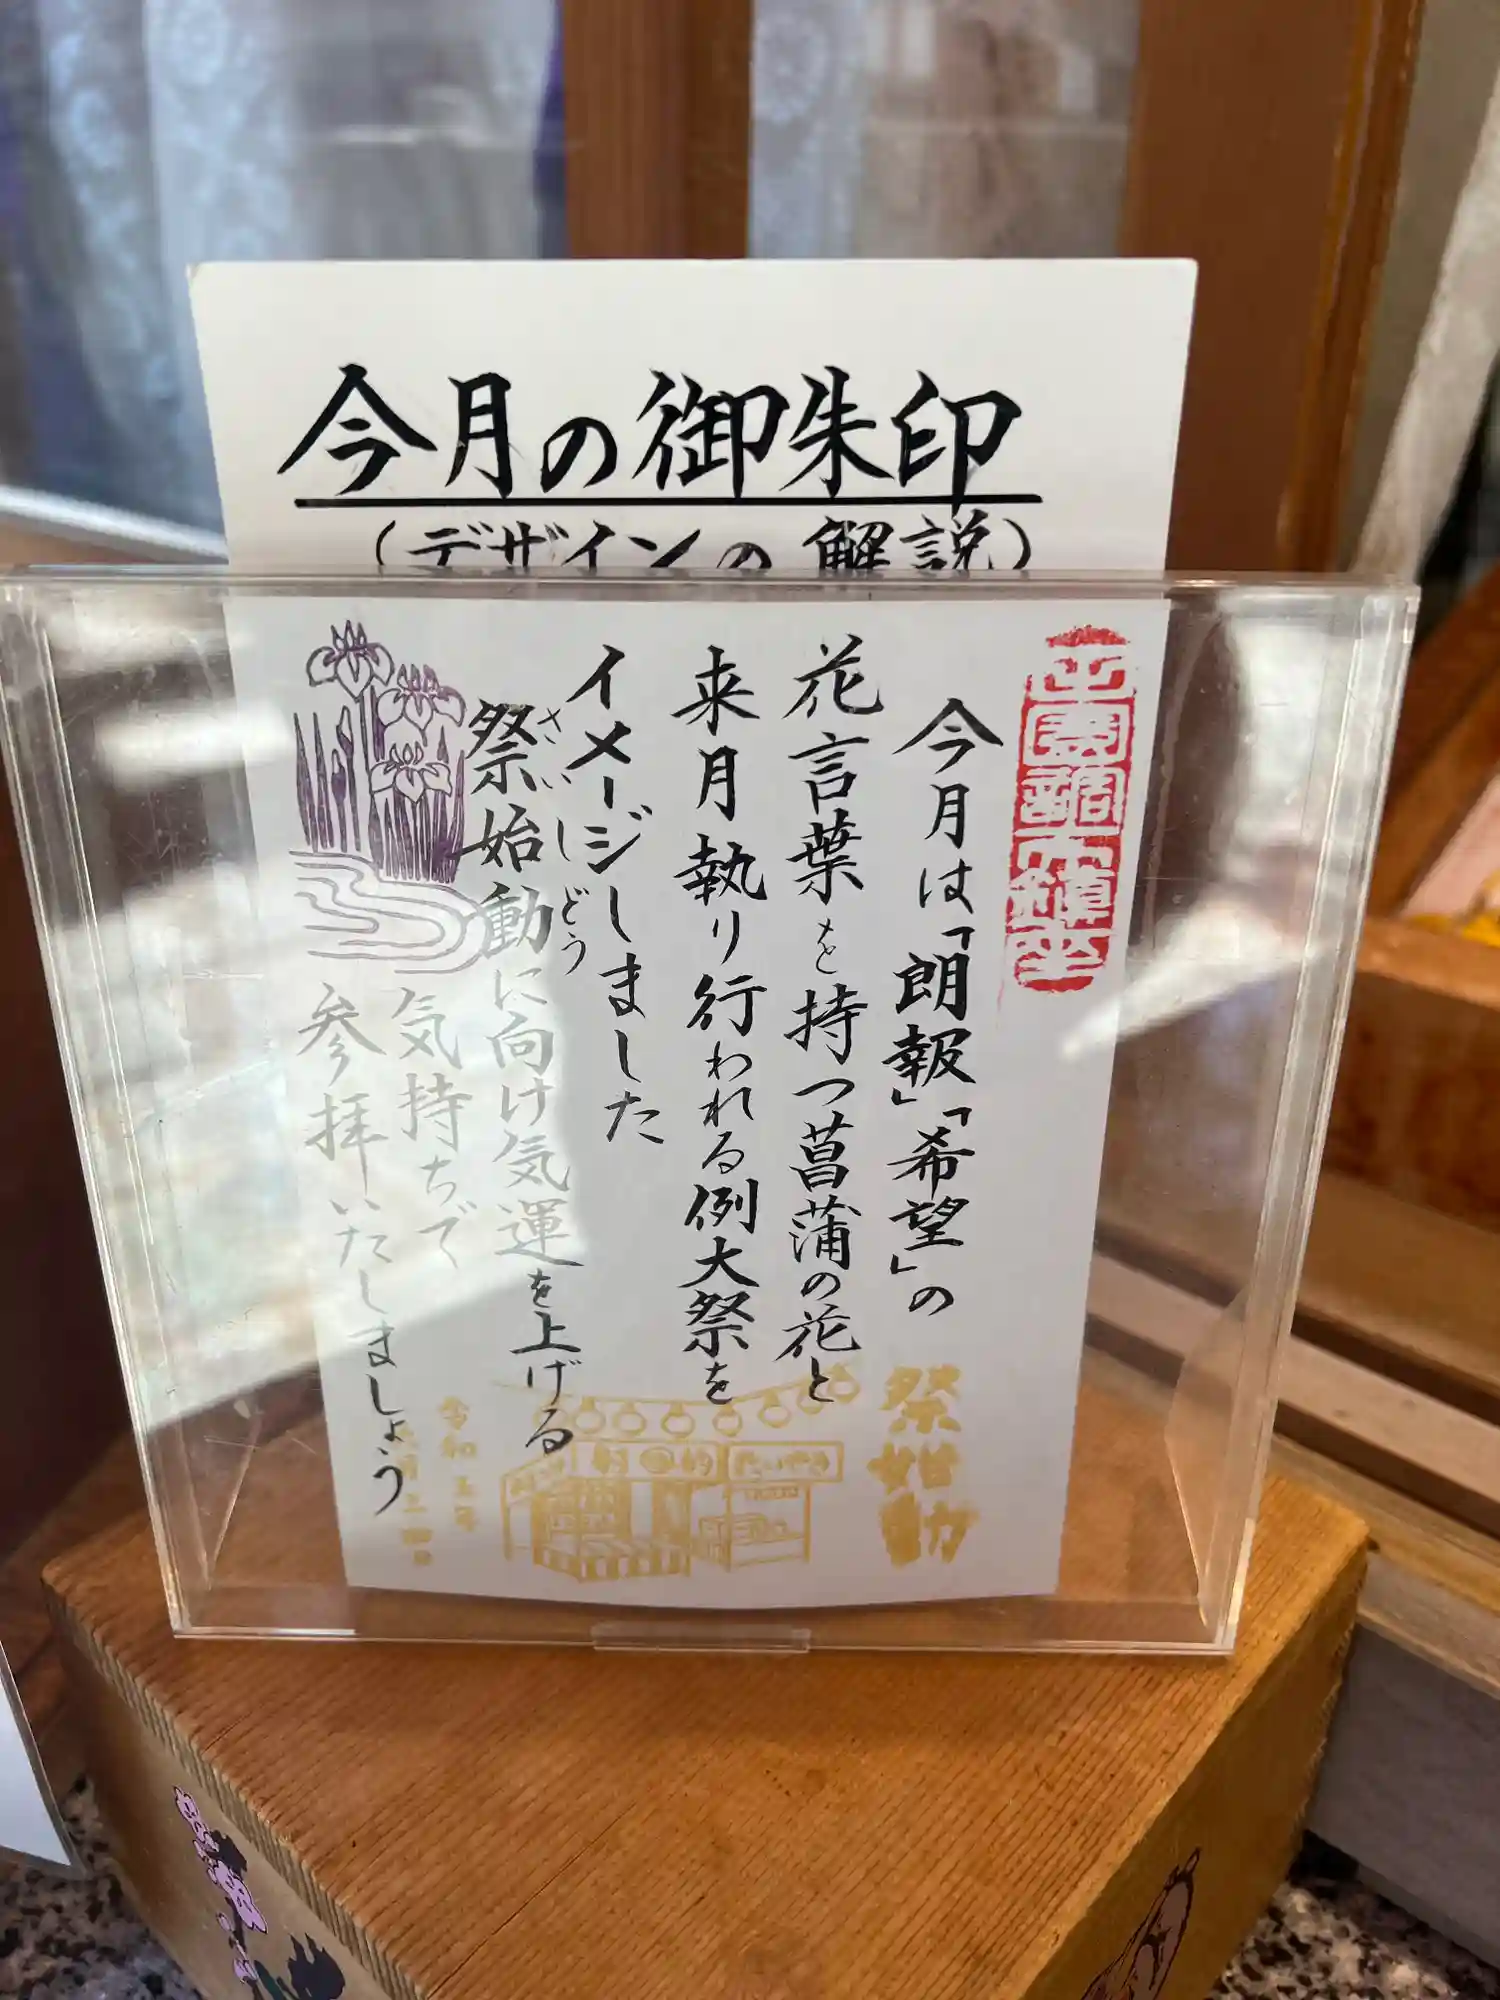 今月の御朱印
（デザインの解説）
今月は「朗報」「希望」の
花言葉を持つ菖蒲の花と
来月執り行われる例大祭を
イメージしました
さいしどう
祭始動に向け気運を上げる
気持ちで
参拝いたしましょう
祭始動
たいやき
令和五年